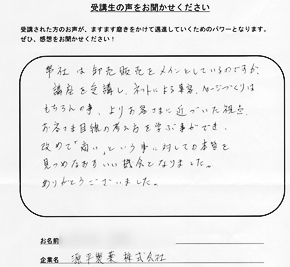 受講生の声をお聞かせください
受講された方のお声が、ますます磨きをかけて邁進していくためのパワーとなります。
ぜひ、感想をお聞かせください！
弊社は卸売販売をメインとしているのですが、
講座を受講し、ネットによる集客、ページづくりは
もちろんの事、よりお客さまに近づいた視点、
お客さま目線の考え方を学ぶ事ができ、
改めて「商い」という事に対しての本質を
見つめなおすいい機会となりました。
ありがとうございました。
お名前
企業名 源平製薬株式会社